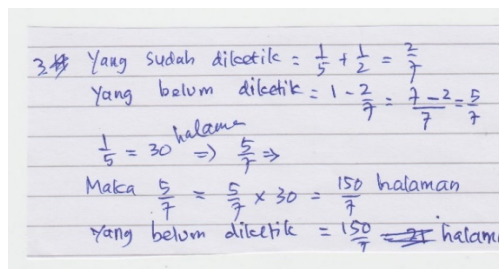 3 Yang sudah diketik = 1/5 + 1/2 = 2/7
Yang belum diketik = 1 - 2/7 = 7-2/7 = 5/7
1/5 = 30 halaman => 5/7 =>
Maka 5/7 = 5/7 × 30 = 150/7 halaman
Yang belum diketik = 150/7 halam